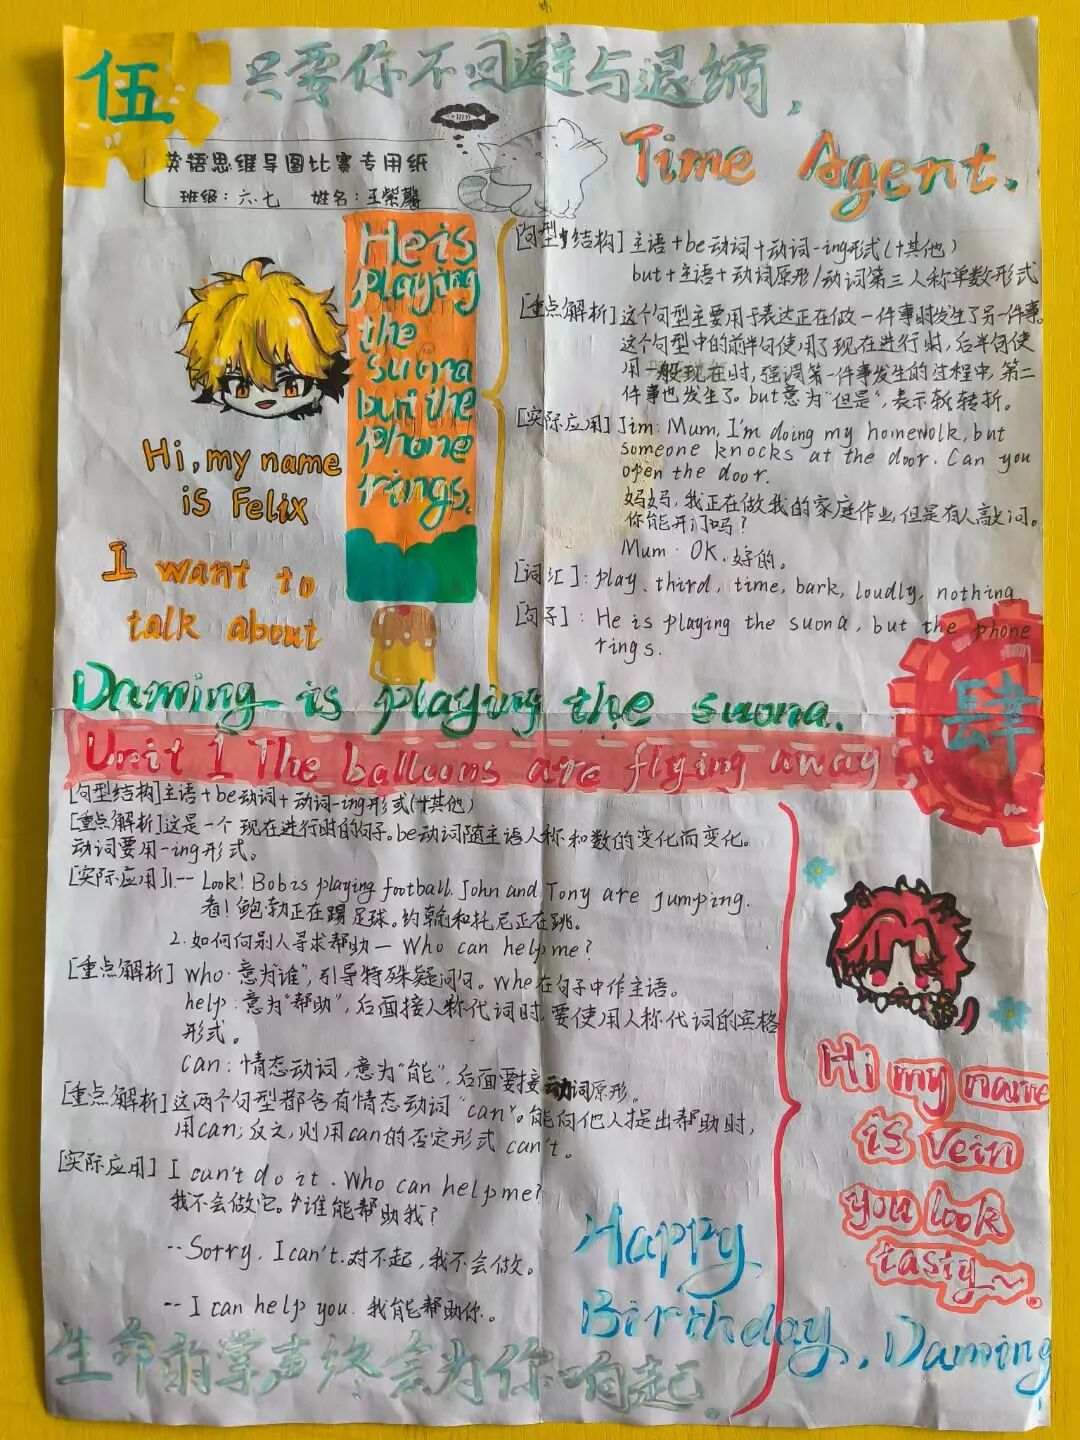 伍
只要你不回避与退缩，
Time Agent.
英语思维导图比赛专用纸
班级：六.七 姓名：王紫馨
He is
playing
the
suona
but the
phone
rings.
Hi, my name
is Felix
I want to
talk about
[句型结构]主语+be动词+动词-ing形式(+其他)
but+主语+动词原形/动词第三人称单数形式
[重点解析]这个句型主要用于表达正在做一件事时发生了另一件事。
这个句型中的前半句使用了现在进行时，后半句使
用一般现在时，强调第一件事发生的过程中，第二
件事也发生了。but意为“但是”，表示转折。
[实际应用]Jim: Mum, I'm doing my homewolk, but
someone knocks at the door. Can you
open the door.
妈妈，我正在做我的家庭作业，但是有人敲门。
你能开门吗？
Mum: OK.好的。
[词汇]: play, third, time, bark, loudly, nothing
[句子]: He is playing the suona, but the phone
rings.
Daming is playing the suona.
肆
Unit 1 The balloons are flying away
[句型结构]主语+be动词+动词-ing形式(+其他)
[重点解析]这是一个现在进行时的句子。be动词随主语人称和数的变化而变化。
动词要用-ing形式。
[实际应用]1.-- Look! Bob is playing football. John and Tony are jumping.
看！鲍勃正在踢足球。约翰和托尼正在跳。
2.如何向别人寻求帮助— Who can help me?
[重点解析] who·意为“谁”，引导特殊疑问句。whe在句子中作主语。
help:意为“帮助”，后面接人称代词时，要使用人称代词的宾格
形式。
can:情态动词，意为“能”，后面要接动词原形。
[重点解析]这两个句型都含有情态动词“can”。能向他人提出帮助时，
用can；反之，则用can的否定形式can't。
[实际应用] I can't do it. Who can help me?
我不会做它。谁能帮助我？
--Sorry, I can't.对不起，我不会做。
-- I can help you. 我能帮助你。
Hi my name
is vein
you look
tasty~.
Happy
Birthday, Daming
生命的掌声终会为你响起.